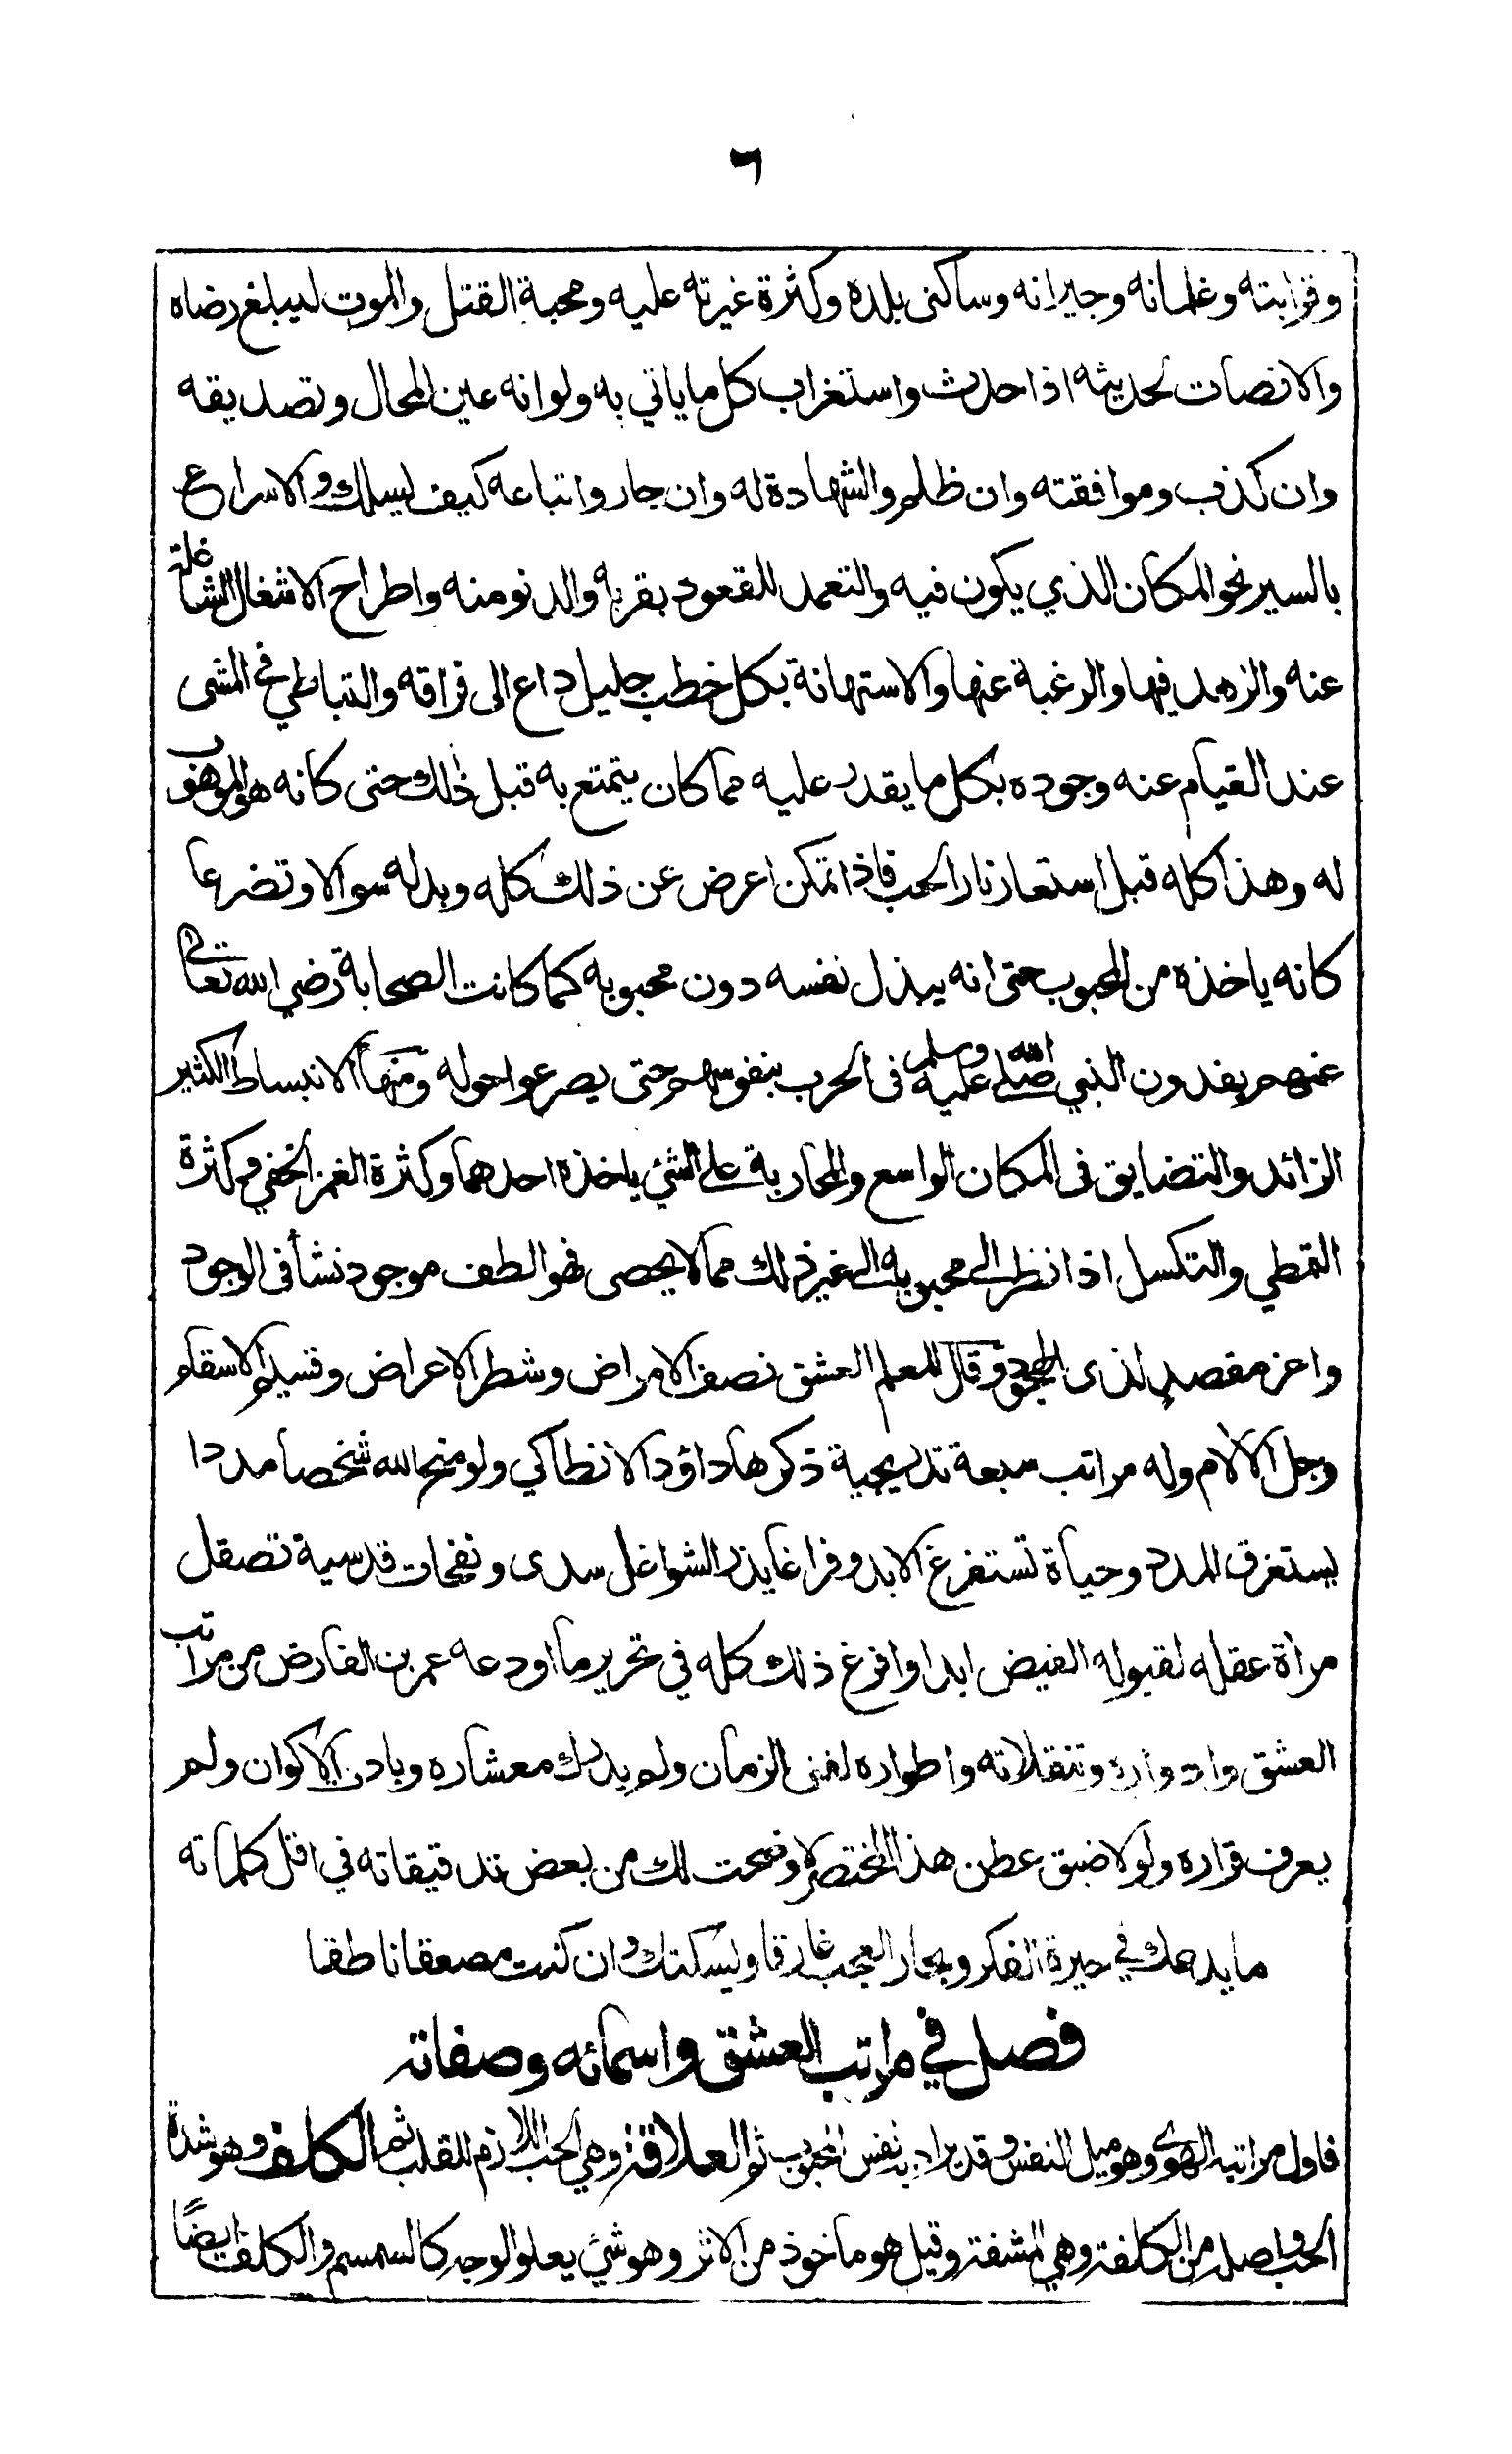 ٦
وقرابته وغلمانه وجيرانه وساكني بلده وكثرة غيرته عليه ومحبة القتل والموت ليبلغ رضاه
والانصات لحديثه اذا حدث واستغراب كل ما ياتي به ولو انه عين المحال وتصديقه
وان كذب وموافقته وان ظلم والشهادة له وان جار واتباعه كيف يسلك والاسراع
بالسير نحو المكان الذي يكون فيه والتعمد للقعود بقربه والدنو منه واطراح الاشغال الشاغلة
عنه والزهد فيها والرغبة عنها والاستهانة بكل خطب جليل داع الى فراقه والتباطي في المشى
عند القيام عنه وجوده بكل ما يقدر عليه مما كان يتمتع به قبل ذلك حتى كانه هو الموهوب
له وهذا كله قبل استعار نار الحب فاذا تمكن اعرض عن ذلك كله وبدله سوالا وتضرعا
كانه ياخذه من المحبوب حتى انه يبذل نفسه دون محبوبه كما كانت الصحابة رضي الله تعالى
عنهم يفدون النبي صلى الله عليه وسلم فى الحرب بنفوسهم حتى يصرعوا حوله ومنها الانبساط الكثير
الزائد والتضايق فى المكان الواسع والمحاربة على الشئ ياخذه احدهما وكثرة الغمز الخفي وكثرة
التمطي والتكسل اذا نظر الى محبوبه الى غير ذلك مما لا يحصى فهو الطف موجود نشأ فى الوجود
واعز مقصد لذى وقال المعلم العشق نصف الامراض وشطر الاعراض وقسيم الاسقام
وجل الآلام وله مراتب سبعة تدريجية ذكرها داؤد الانطاكي ولو منح الله شخصا مددا
يستغرق المدد وحياة تستفرغ الابد وفراغا يذر الشواغل سدى ونفحات قدسية تصقل
مرأة عقله لقبوله الفيض ابدا وافرغ ذلك كله في تحرير ما اودعه عمر بن الفارض من مراتب
العشق وادواره وتنقلاته واطواره لفنى الزمان ولم يدرك معشاره وبادت الاكوان ولم
يعرف قراره ولولا ضيق عطن هذا المختصر لاوضحت لك من بعض تدقيقاته في اقل كلماته
ما يدهك في حيرة الفكر وبحار العجب غارقا ويسكتك وان كنت مصعقا ناطقا
فصل في مراتب العشق واسمائه وصفاته
فاول مراتبه الهوى وهو ميل النفس وقد يراد به نفس المحبوب ثم العلاقة وهي الحب اللازم للقلب ثم الكلف وهو شدة
الحب واصله من الكلفة وهي المشقة وقيل هو ماخوذ من الاثر وهو شئ يعلو الوجه كالسمسم والكلف ايضًا